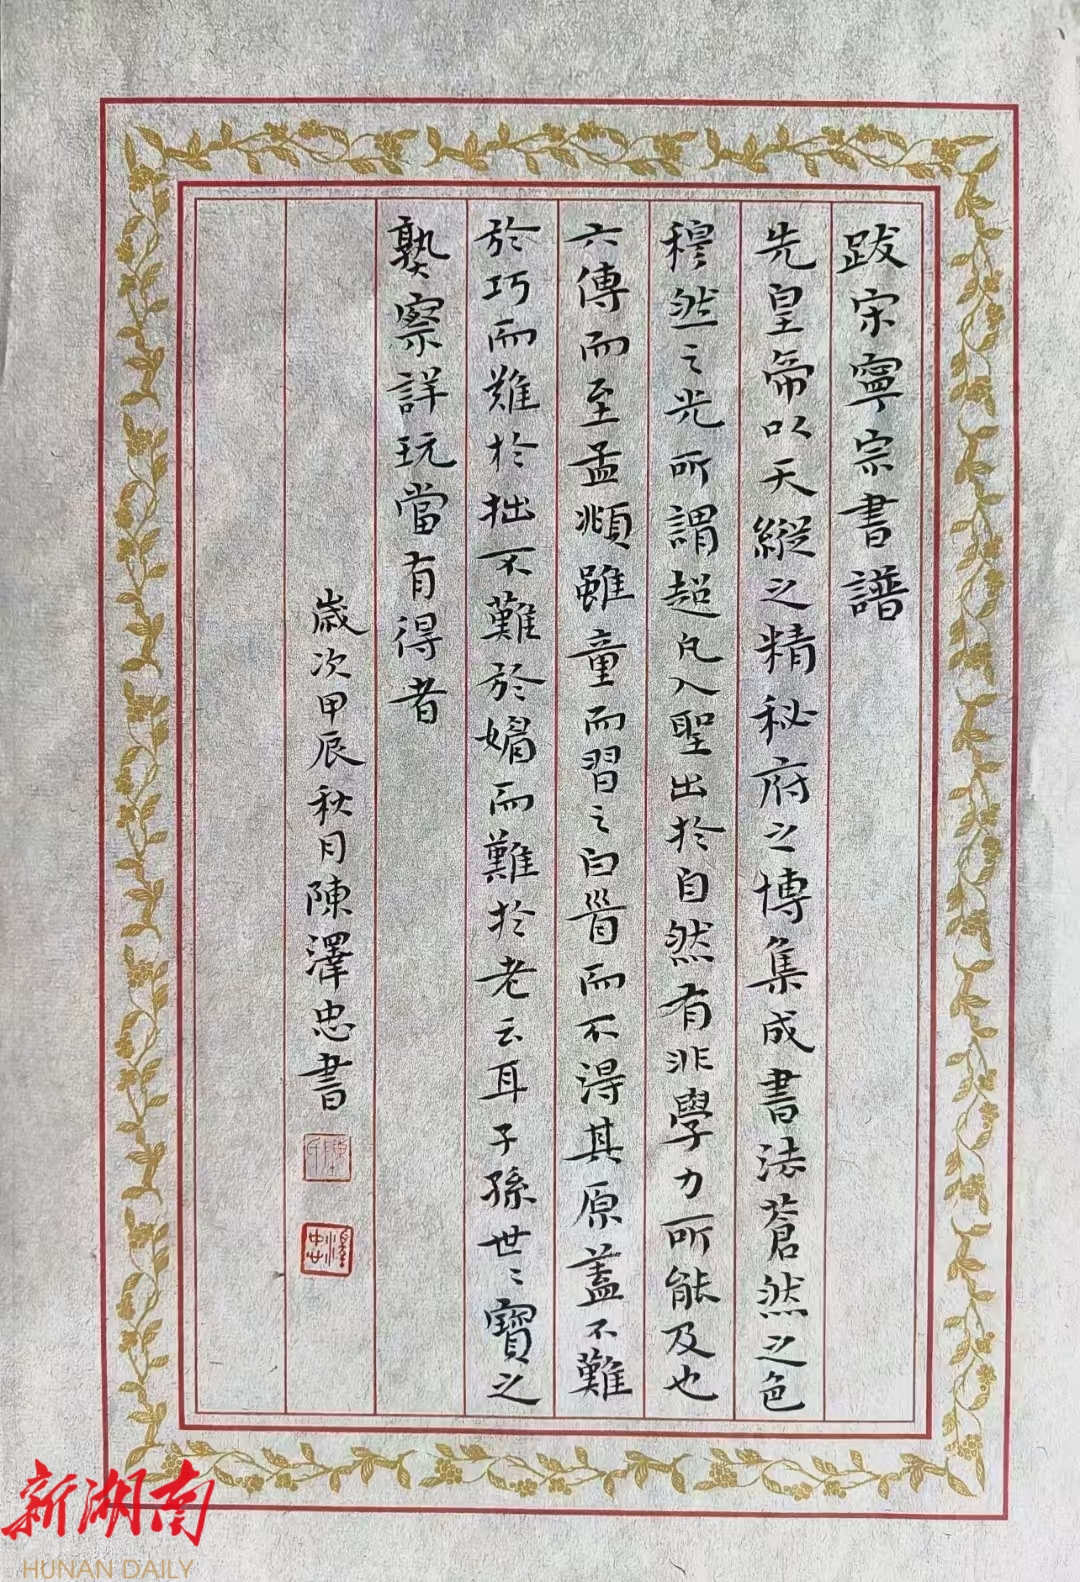 跋宋寧宗書譜
先皇帝以天縱之精秘府之博集成書法蒼然之色
穆然之光所謂超凡入聖出於自然有非學力所能及也
六傳而至孟頫雖童而習之白首而不得其原蓋不難
於巧而難於拙不難於媚而難於老云耳子孫世〻寶之
熟察詳玩當有得者
歲次甲辰秋月陳澤忠書
新湖南
HUNAN DAILY